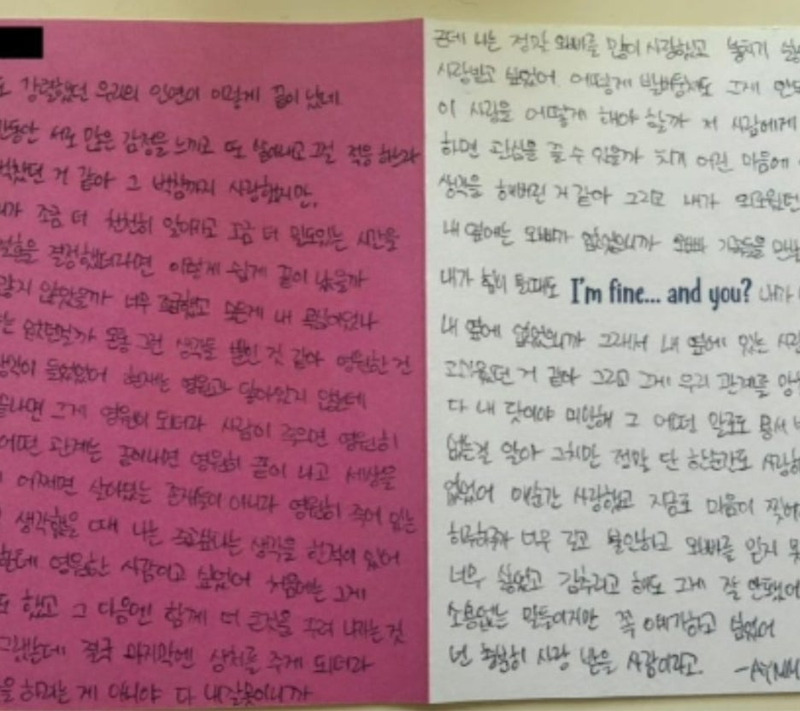 강렬했던 우리의 인연이 이렇게 끝이 났네
서로 많은 감정을 느끼고 또 쏟아내고 그걸 적응하느라
벅찼던 거 같아 그 벅참까지 사랑했지만,
조금 더 천천히 알아가고 조금 더 밀도있는 시간을
결정했더라면 이렇게 쉽게 끝이 났을까
않았을까 너무 조급했고 모든게 내 욕심이었나
없었던걸까 온통 그런 생각들 뿐인 것 같아 영원한 건
생각이 들었었어 현재는 영원과 닿아있지 않는데
끝나면 그게 영원이 되더라 사람이 죽으면 영원히
어떤 관계는 끝이나면 영원히 끝이 나고 세상을
어쩌면 살아있는 존재들이 아니라 영원히 죽어 있는
생각했을 때 나는 죽고싶다는 생각을 한적이 있어
영원한 사람이고 싶었어 처음에는 그게
했고 그 다음엔 함께 더
결국 마지막엔 상처를 주게 되더라
하려는 게 아니야 다 내잘못이니까
근데 나는 정말 오빠를 많이 사랑했고 놓치기
사랑받고 싶었어 어떻게 발버둥쳐도 그게
이 사랑을 어떻게 해야 할까 저 사람에게
하면 관심을 끌 수 있을까 치기 어린 마음에
생각을 해버린 거 같아 그리고 내가 외로웠던
내 옆에는 오빠가 없었으니까 오빠
내가 힘이 들때도 I'm fine... and you? 내가
내 옆에 없었으니까 그래서 내 옆에 있는
고 거 같아 그리고 그게 우리 관계를
다 내 탓이야 미안해 그 어떤 말로도 용서
없는걸 알아 그치만 정말 단 한순간도
없었어 매순간 사랑했고 지금도 마음이
하루하루가 너무 길고 불안하고 오빠를 잃지
너무 싫었고 감추려고 해도 그게 잘 안됐어
소용없는 말들이지만 꼭 얘기하고 싶었어
넌 충분히 사랑 받을 사람이라고.